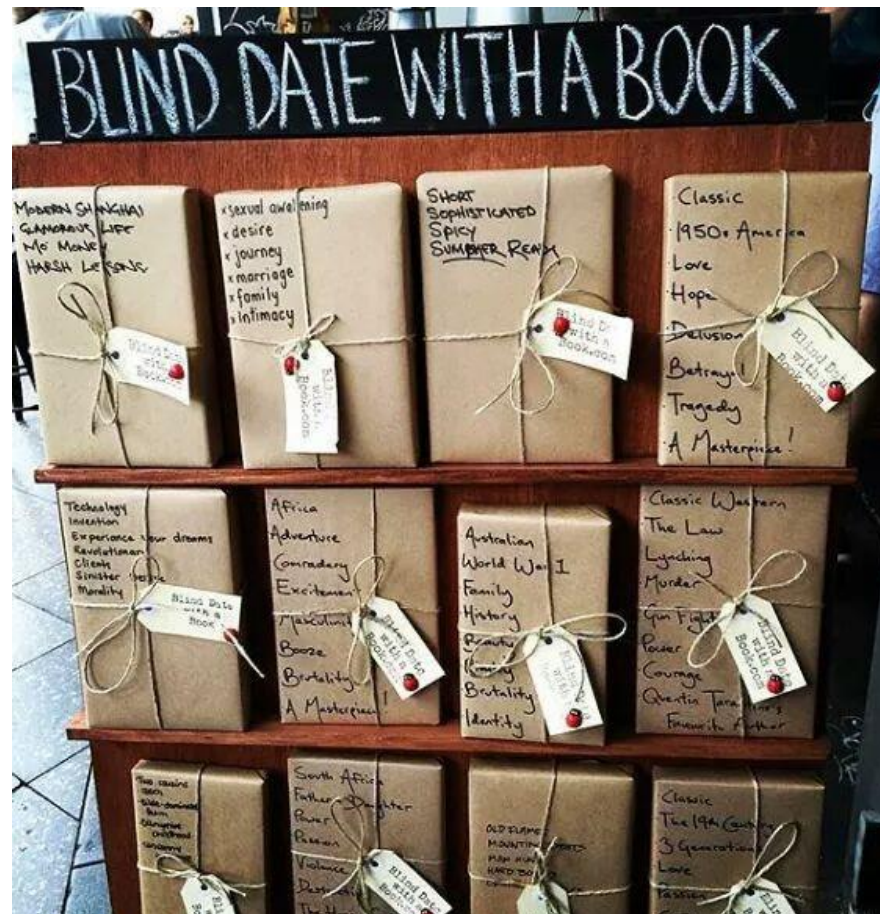 BLIND DATE WITH A BOOK
MODERN SHANGHAI
GLAMOROUS LIFE
MO' MONEY
HARSH LESSONS
Blind Date
with a
Book.com
x sexual awakening
x desire
x journey
x marriage
x family
x Intimacy
Blind
with a
Book.com
SHORT
SOPHISTICATED
SPICY
SUMMER READ
Blind Date
with a
Book.com
Classic
1950s America
Love
Hope
Delusion
Betrayal
Tragedy
A Masterpiece!
Blind Date
with a
Book.com
Technology
Invention
Experience your dreams
Revolutionary
Clients
Sinister
Morality
Blind Date
with a
Book
Africa
Adventure
Comradery
Excitement
Masculinity
Booze
Brutality
A Masterpiece!
Blind Date
with a
Book.com
Australian
World War I
Family
History
Beauty
Brutality
Identity
Blind
with a
Classic Western
The Law
Lynching
Murder
Gun Fight
Power
Courage
Quentin Tarantino's
Favourite Author
Blind Date
with a
Book.com
Two cousins
farm
childhood
Blind
South Africa
Father Daughter
Power
Passion
Violence
Blind Date
with a
Book.com
OLD FLAME
MOUNTING
MAN
HARD
Classic
The 19th Century
3 Generations
Love
Passion
Blind Date